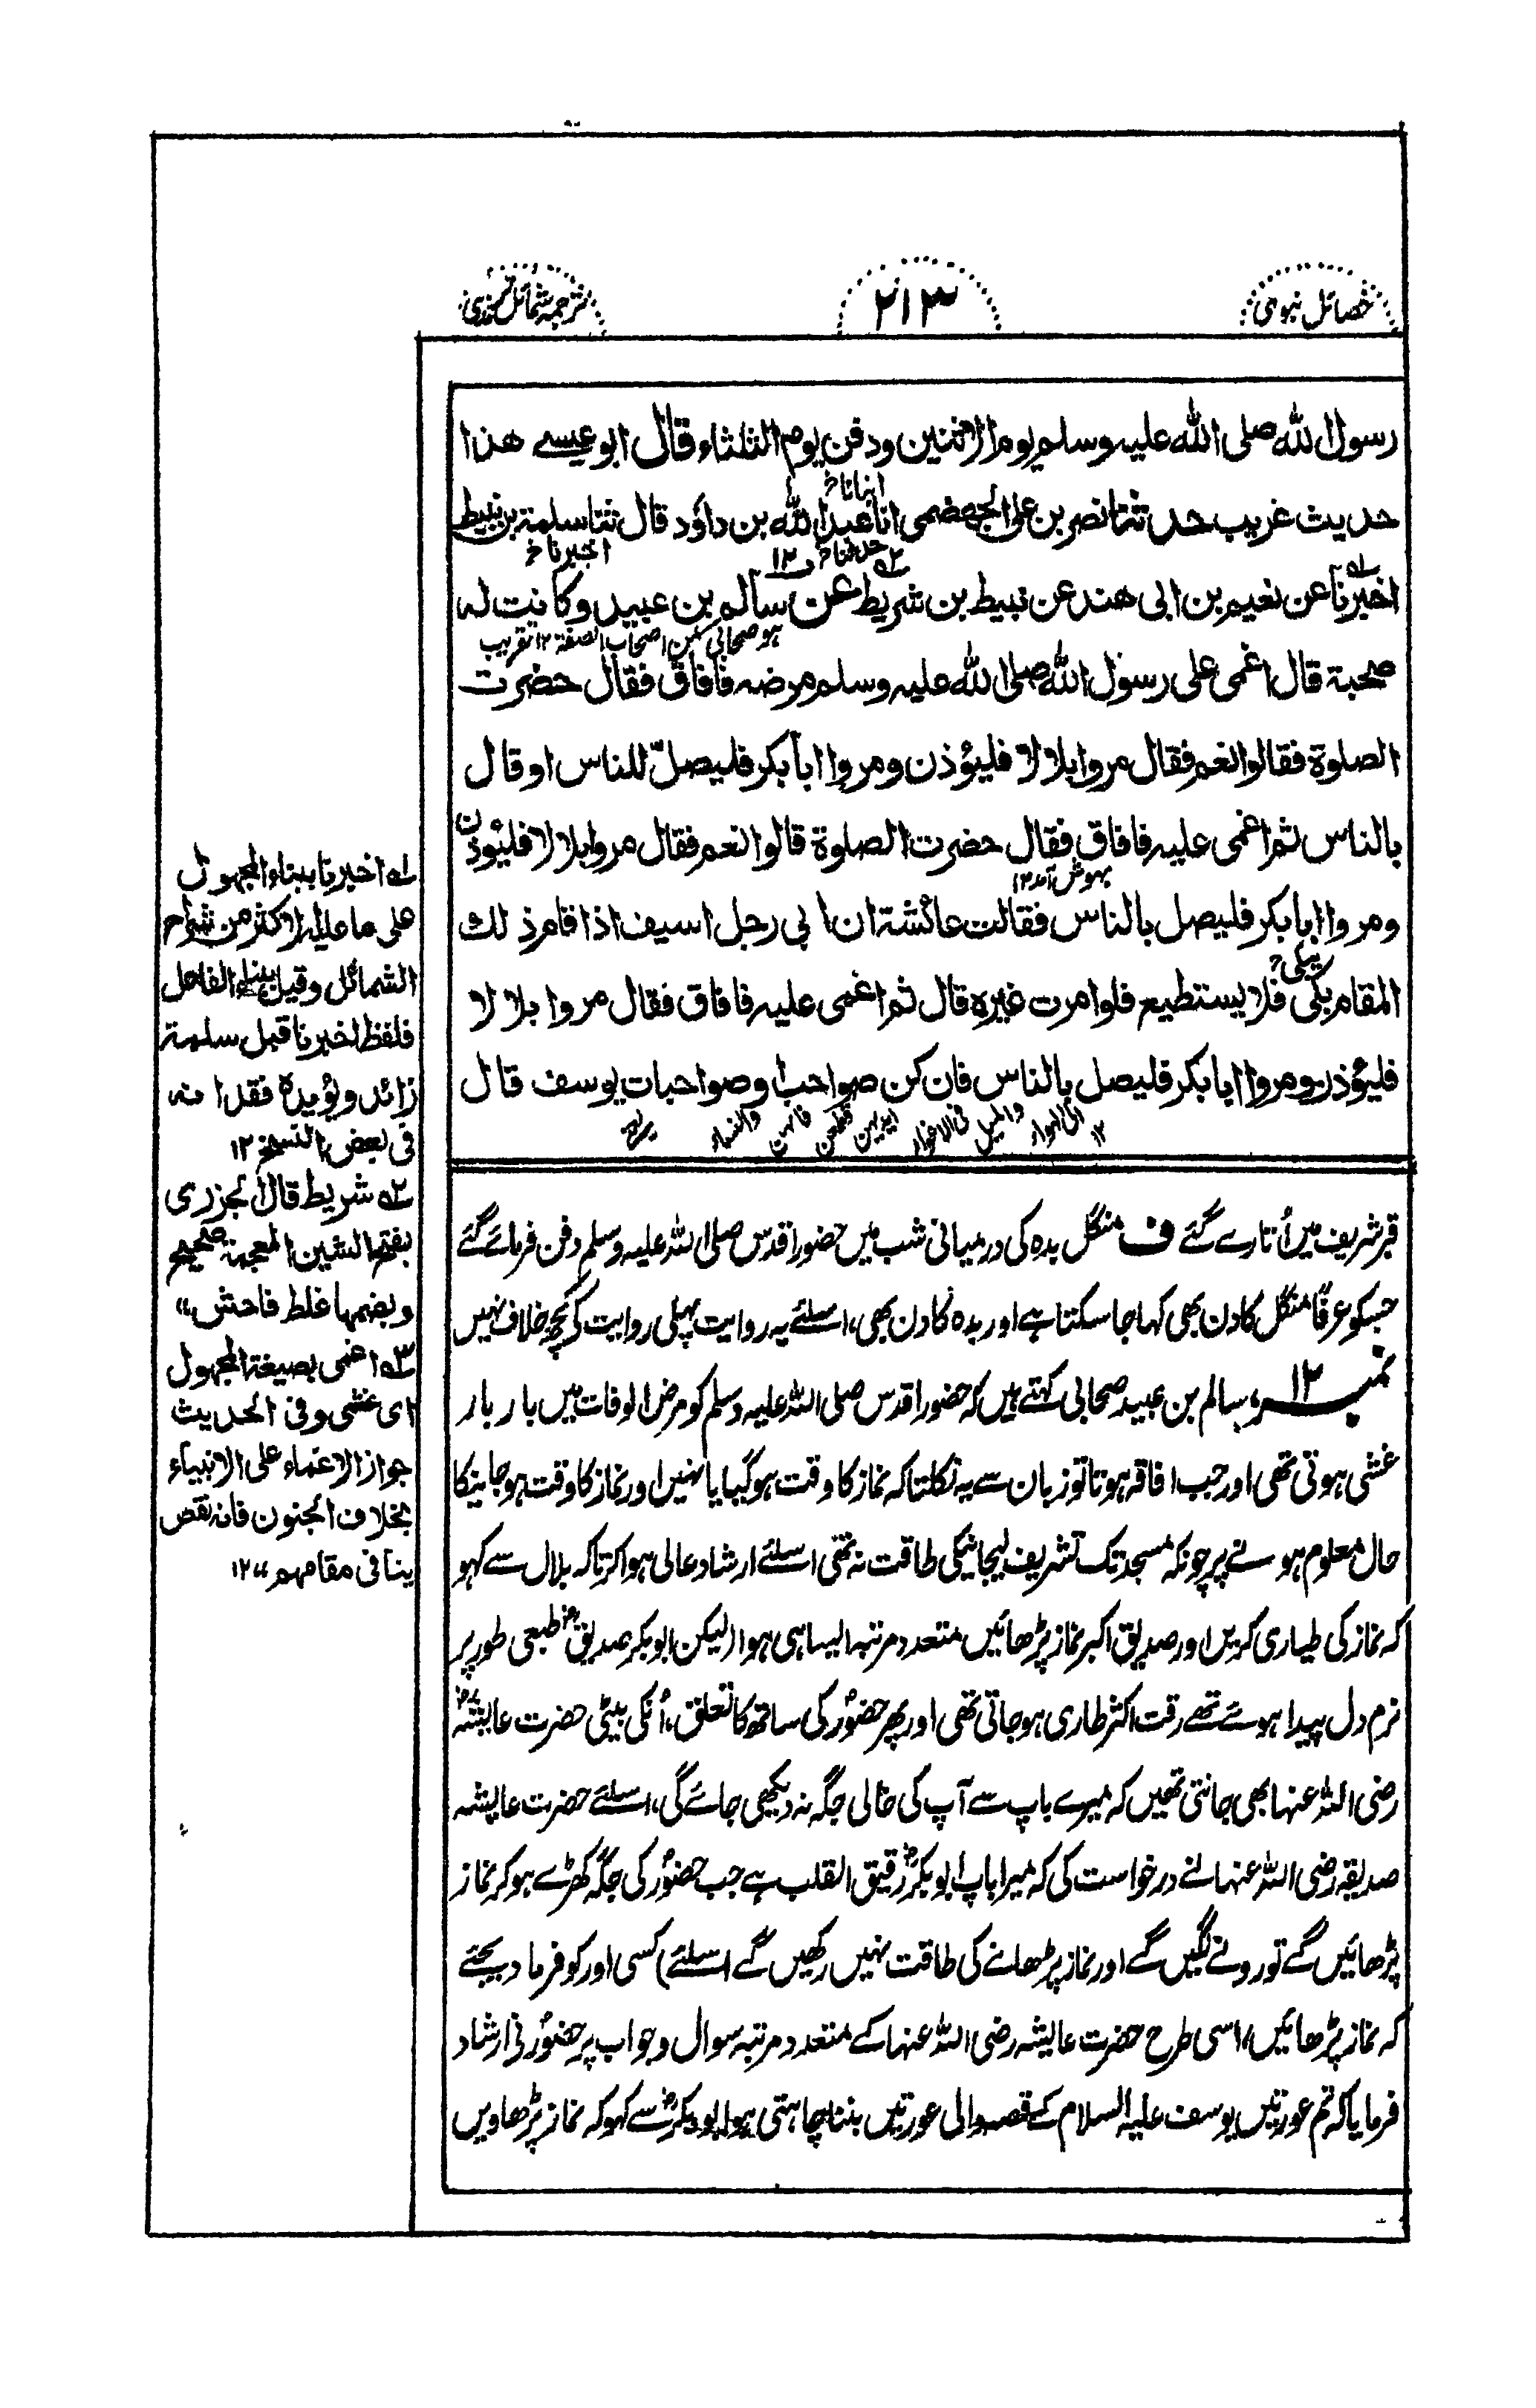 خصائل نبوی
۲۱۳
ترجمہ شمائل ترمذی
رسول الله صلى الله عليه وسلم يوم الاثنين ودفن يوم الثلثاء قال ابو عيسے هذا
انبانا
حديث غريب حدثنا نصر بن على الجهضمى انا عبد الله بن داؤد قال ثنا سلمة بن نبيط
حدثنا ۱۲ اخبرنا
اخبرنا عن نعيم بن ابى هند عن نبيط بن شريط عن سالم بن عبيد وكانت له
هو صحابى من اصحاب الصفة ۱۲ تقريب
صحبة قال اغمى على رسول الله صلى الله عليه وسلم مرضه فافاق فقال حضرت
الصلوة فقالوا نعم فقال مروا بلالا فليؤذن ومروا ابا بكر فليصلّ للناس او قال
بالناس ثم اغمى عليه فافاق فقال حضرت الصلوة قالوا نعم فقال مروا بلالا فليؤذن
بہوش آمد ۱۲
ومروا ابا بكر فليصل بالناس فقالت عائشة ان ابى رجل اسيف اذا قام ذلك
يبكى
المقام بكى فلا يستطيع فلو امرت غيره قال ثم اغمى عليه فافاق فقال مروا بلالا
فليؤذن ومروا ابا بكر فليصل بالناس فان كن صواحب او صواحبات يوسف قال
قبر شریف میں اُتارے گئے ف منگل بدہ کی درمیانی شب میں حضور اقدس صلی اللہ علیہ وسلم دفن فرمائے گئے
جسکو عرفًا منگل کا دن بھی کہا جا سکتا ہے اور بدہ کا دن بھی، اسلئے یہ روایت پہلی روایت کے کچھ خلاف نہیں
نمبر ۱۲ سالم بن عبید صحابی کہتے ہیں کہ حضور اقدس صلی اللہ علیہ وسلم کو مرض الوفات میں بار بار
غشی ہوتی تھی اور جب افاقہ ہوتا تو زبان سے یہ نکلتا کہ نماز کا وقت ہو گیا یا نہیں اور نماز کا وقت ہو جانیکا
حال معلوم ہونے پر چونکہ مسجد تک تشریف لیجانیکی طاقت نہ تھی اسلئے ارشاد عالی ہوا کرتا کہ بلال سے کہو
کہ نماز کی طیاری کریں اور صدیق اکبر نماز پڑھائیں متعدد مرتبہ ایسا ہی ہوا (لیکن ابو بکر صدیقؓ طبعی طور پر
نرم دل پیدا ہوئے تھے رقت اکثر طاری ہو جاتی تھی اور پھر حضورؐ کی ساتھ کا تعلق، اُنکی بیٹی حضرت عایشہؓ
رضی اللہ عنہا بھی جانتی تھیں کہ میرے باپ سے آپ کی خالی جگہ نہ دیکھی جائے گی، اسلئے حضرت عایشہ
صدیقہ رضی اللہ عنہا نے درخواست کی کہ میرا باپ ابو بکرؓ رقیق القلب ہے جب حضورؐ کی جگہ کھڑے ہو کر نماز
پڑھائیں گے تو رونے لگیں گے اور نماز پڑھانے کی طاقت نہیں رکھیں گے اسلئے) کسی اور کو فرما دیجئے
کہ نماز پڑھائیں، اسی طرح حضرت عایشہ رضی اللہ عنہا کے متعدد مرتبہ سوال وجواب پر حضورؐ نے ارشاد
فرمایا کہ تم عورتیں یوسف علیہ السلام کے قصہ والی عورتیں بننا چاہتی ہو ابو بکرؓ سے کہو کہ نماز پڑھاویں
لہ اخبرنا ببناء المجهول
على ما عليه الاكثر من شراح
الشمائل وقيل ببناء الفاعل
فلفظ اخبرنا قبل سلمة
زائد ويؤيده فقدانه
فى بعض النسخ ۱۲
۲ه شريط قال الجزرى
بفتح الشين المعجمة صحيح
وبضمها غلط فاحش،،
۳ه اغمى بصيغة المجهول
اى غشى وفى الحديث
جواز الاغماء على الانبياء
بخلاف الجنون فانه نقص
ينافى مقامهم ،،۱۲